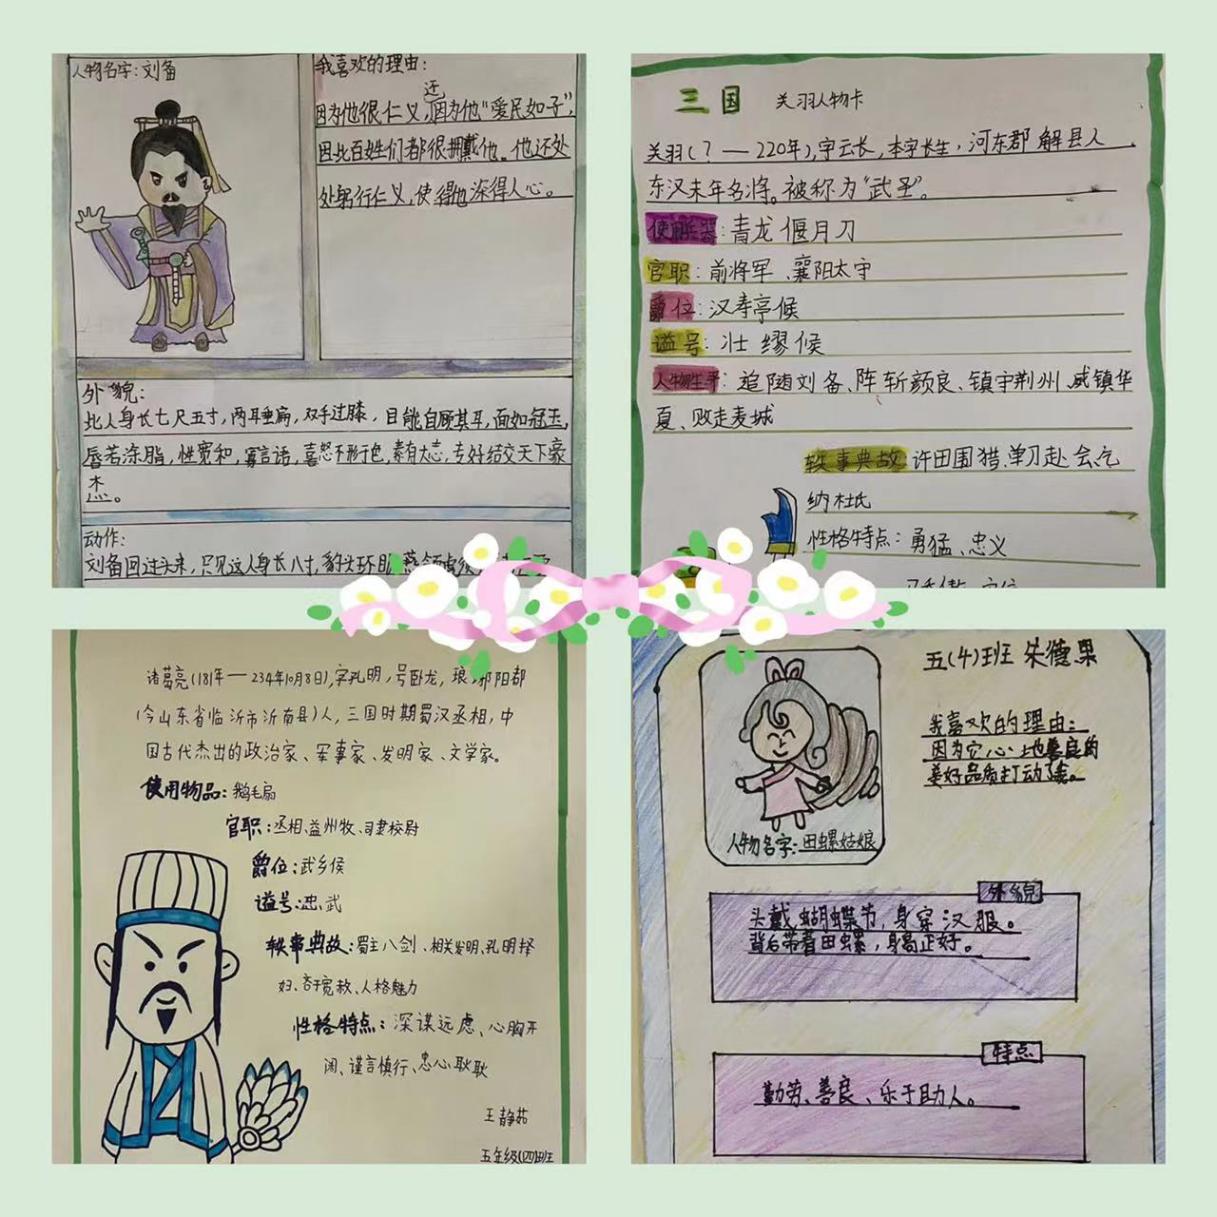 人物名字:刘备
我喜欢的理由:
还
因为他很仁义,因为他“爱民如子”,
因此百姓们都很拥戴他。他还处
处躬行仁义,使得他深得人心。
外貌:
比人身长七尺五寸,两耳垂肩,双手过膝,目能自顾其耳,面如冠玉,
唇若涂脂,性宽和,寡言语,喜怒不形于色,素有大志,专好结交天下豪
杰。
动作:
刘备回过头来,只见这人身长八寸,豹头环眼,燕
三国 关羽人物卡
关羽(?—220年),字云长,本字长生,河东郡解县人,
东汉末年名将。被称为“武圣”。
使用兵器:青龙偃月刀
官职:前将军、襄阳太守
爵位:汉寿亭候
谥号:壮缪候
人物生平:追随刘备、阵斩颜良、镇守荆州、威镇华
夏、败走麦城
轶事典故 许田围猎、单刀赴会、乞
纳杜氏
性格特点:勇猛、忠义
诸葛亮(181年—234年10月8日),字孔明,号卧龙,琅琊阳都
(今山东省临沂市沂南县)人,三国时期蜀汉丞相,中
国古代杰出的政治家、军事家、发明家、文学家。
使用物品:鹅毛扇
官职:丞相、益州牧、司隶校尉
爵位:武乡侯
谥号:忠武
轶事典故:蜀主八剑、相关发明、孔明择
妇、吝于宽赦、人格魅力
性格特点:深谋远虑、心胸开
阔、谨言慎行、忠心耿耿
王静茹
五年级(四)班
五(4)班 朱德果
我喜欢的理由:
因为它心地善良的
美好品质打动了我。
人物名字:田螺姑娘
外貌
头戴蝴蝶节,身穿汉服。
背后带着田螺,身高正好。
特点
勤劳、善良、乐于助人。